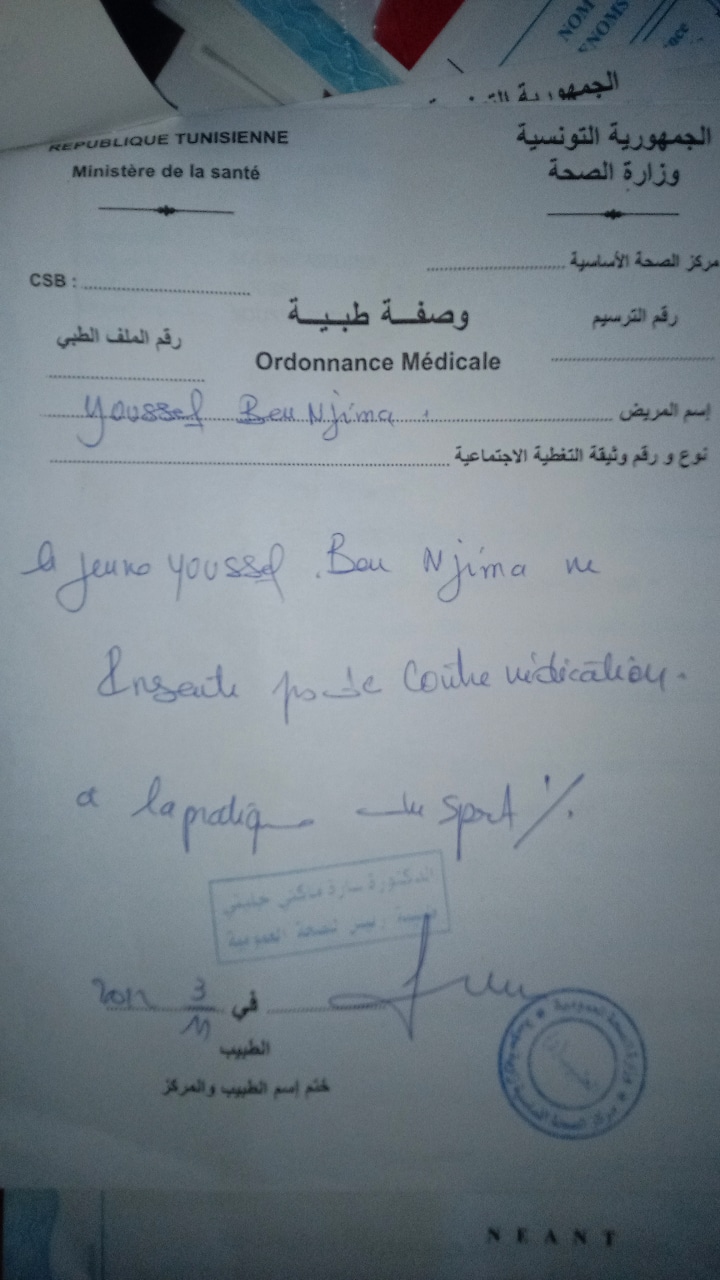 NOM
ENOMS
الجمهورية
REPUBLIQUE TUNISIENNE
الجمهورية التونسية
Ministère de la santé
وزارة الصحة
مركز الصحة الأساسية
CSB :
وصفة طبية
رقم الترسيم
رقم الملف الطبي
Ordonnance Médicale
إسم المريض Youssef Ben Njima
نوع و رقم وثيقة التغطية الاجتماعية
le jeune Youssef Ben Njima ne
pas de contre
a la pratique du sport
الدكتورة سارة
في 3
11
الطبيب
ختم إسم الطبيب والمركز
NEANT